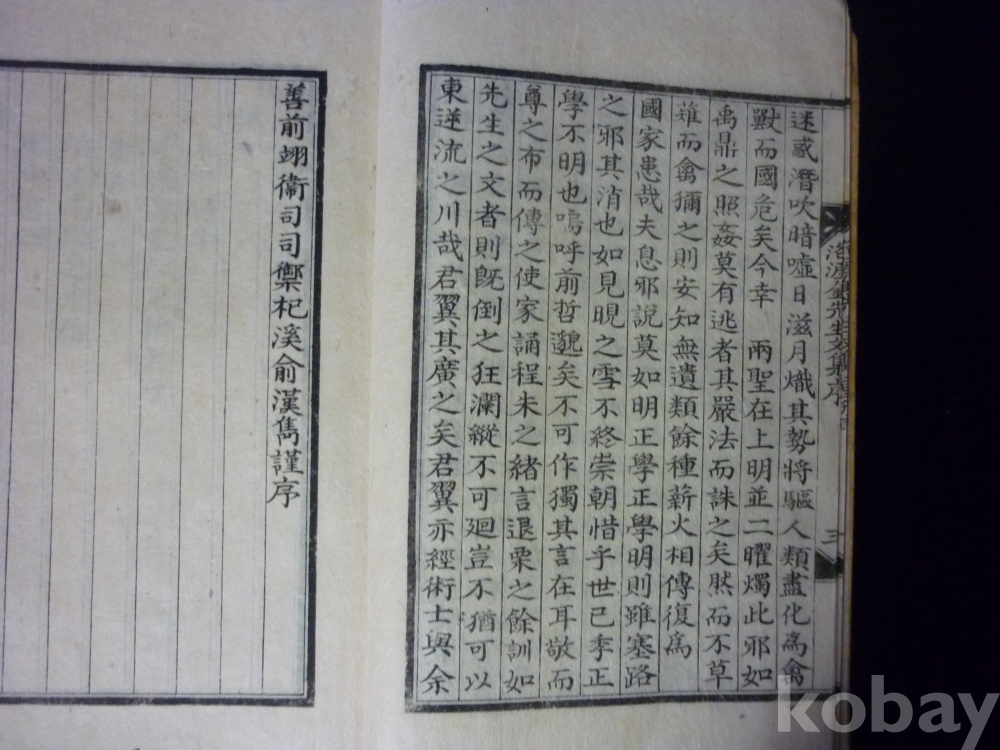 迷惑潛吹暗噓日滋月熾其勢將驅人類盡化爲禽
獸而國危矣今幸 兩聖在上明並二曜燭此邪如
禹鼎之照姦莫有逃者其嚴法而誅之矣然而不草
薙而禽獮之則安知無遺類餘種薪火相傳復爲
國家患哉夫息邪說莫如明正學正學明則雖塞路
之邪其消也如見晛之雪不終崇朝惜乎世已季正
學不明也嗚呼前哲邈矣不可作獨其言在耳敬而
尊之布而傳之使家誦程朱之緖言退栗之餘訓如
先生之文者則旣倒之狂瀾縱不可廻豈不猶可以
東逆流之川哉君翼其廣之矣君翼亦經術士與余
善前翊衞司司禦杞溪兪漢雋謹序
先生文集序
三
kobay